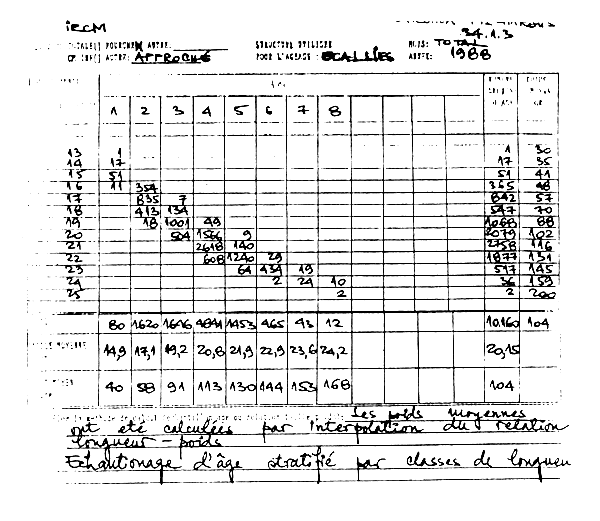 iECM
34.1.3
AUTRE:
STRUCTURE UTILISEE MOIS: TOTAL
AUTRE: APPROCHÉ POUR L'AGEAGE : ECAILLES ANNEE: 1988
1 2 3 4 5 6 7 8
13 1 1 30
14 17 17 35
15 51 51 41
16 11 354 365 48
17 835 7 842 57
18 413 134 547 70
19 18 1001 49 1068 88
20 504 1566 9 2079 102
21 2618 140 2758 116
22 608 1240 29 1877 131
23 64 434 19 517 145
24 2 24 10 36 159
25 2 2 200
80 1620 1646 4841 1453 465 43 12 10.160 104
14,9 17,1 19,2 20,8 21,9 22,9 23,6 24,2 20,15
40 58 91 113 130 144 153 168 104
Les poids moyennes
ont été calculées par interpolation du relation
longueur - poids
Echantionage d'âge stratifié par classes de longueu